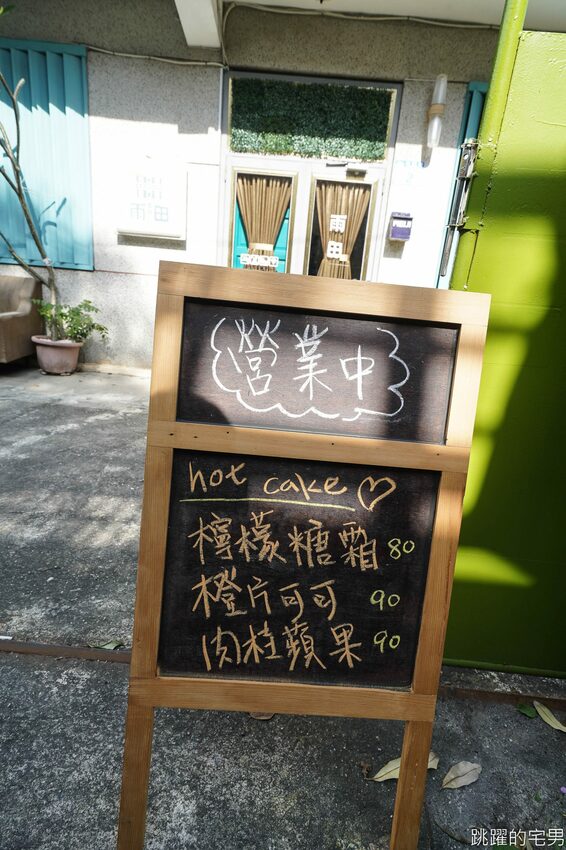 雨田
雨
田
營業中
hot cake
檸檬糖霜 80
橙片可可 90
肉桂蘋果 90
跳躍的宅男